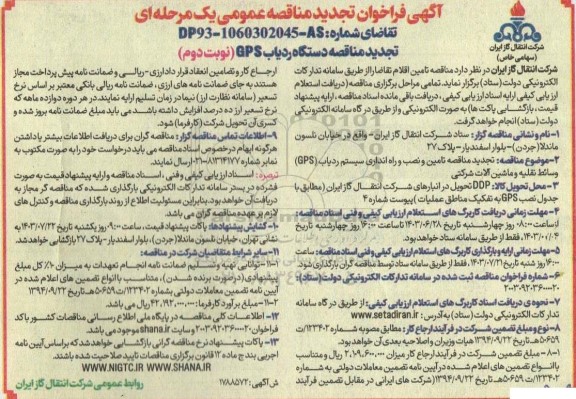 آگهی فراخوان تجدید مناقصه عمومی یک مرحله ای
تقاضای شماره: DP93-1060302045-AS
تجدید مناقصه دستگاه ردیاب GPS (نوبت دوم)
شرکت انتقال گاز ایران
(سهامی خاص)
شرکت انتقال گاز ایران در نظر دارد مناقصه تامین اقلام تقاضا را از طریق سامانه تدارکات
الکترونیکی دولت (ستاد) برگزار نماید. تمامی مراحل برگزاری مناقصه (دریافت استعلام
ارزیابی کیفی، ارایه اسناد ارزیابی کیفی، دریافت باقی مانده اسناد مناقصه، ارایه پیشنهاد
قیمت، بازگشایی پاکت ها) به صورت الکترونیکی و از طریق درگاه سامانه الکترونیکی
دولت (ستاد) انجام خواهد گرفت.
۱- نام و نشانی مناقصه گزار: ستاد شرکت انتقال گاز ایران - واقع در خیابان نلسون
ماندلا (جردن) - بلوار اسفندیار - پلاک ۲۷
۲- موضوع مناقصه: تجدید مناقصه تامین و نصب و راه اندازی سیستم ردیاب (GPS)
وسائط نقلیه و ماشین آلات شرکتی
۳- محل تحویل کالا: DDP تحویل در انبارهای شرکت انتقال گاز ایران (مطابق با
جدول نصب GPS به تفکیک مناطق عملیات) پیوست شماره ۴
۴- مهلت زمانی دریافت کاربرگ های استعلام ارزیابی کیفی و فنی اسناد مناقصه:
از ساعت ۰۸:۰۰ روز چهارشنبه تاریخ ۱۴۰۳/۰۶/۲۸ تا ساعت ۱۶:۰۰ روز چهارشنبه تاریخ
فقط از طریق سامانه ستاد خواهد بود.
۵- مهلت زمانی ارایه و بارگذاری کاربرگ های استعلام ارزیابی کیفی و فنی اسناد مناقصه:
فقط از طریق سامانه ستاد توسط مناقصه گران بارگذاری شود.
۶- شماره فراخوان مناقصه ثبت شده در سامانه تدارکات الکترونیکی دولت (ستاد):
۲۰۰۳۰۹۲۰۳۶۰۰۰۰۲۰
۷- نحوه ی دریافت اسناد کاربرگ های استعلام ارزیابی کیفی: از طریق درگاه سامانه
تدارکات الکترونیکی دولت (ستاد) به آدرس: www.setadiran.ir
۸- نوع و مبلغ تضمین شرکت در فرآیند ارجاع کار: مطابق مصوبه شماره ۱۲۳۴۰۲/ت
۵۰۶۵۹هـ تاریخ ۱۳۹۴/۰۹/۲۲ هیات وزیران و اصلاحیه بعدی آن خواهد بود.
۸-۱- مبلغ تضمین شرکت در فرآیند ارجاع کار میزان ۲,۱۰۹,۶۰۰,۰۰۰ ریال و متناسب
با انواع تضمین های اعلام شده در آیین نامه تضمین معاملات دولتی به شماره
۱۲۳۴۰۲/ت ۵۰۶۵۹هـ تاریخ ۱۳۹۴/۰۹/۲۲ (شرکت های ایرانی در مقابل تضمین فرآیند
ارجاع کار و تضامین انعقاد قرارداد ارزی - ریالی و ضمانت نامه پیش پرداخت مجاز
هستند به جای ضمانت نامه های ارزی، ضمانت نامه ریالی بانکی معتبر بر اساس نرخ
تسعیر (سامانه نظارت ارز) نیما در زمان تسلیم ارایه نمایند. در هر دوره دوازده ماهه که
نرخ تسعیر ارز ده درصد افزایش داشته باشد می باید مبلغ ضمانت نامه بروز شده و
کسری آن تحویل شرکت (کارفرما) شود.
۹- اطلاعات تماس مناقصه گزار: مناقصه گران برای دریافت اطلاعات بیشتر یا داشتن
هرگونه ابهام در خصوص اسناد مناقصه می باید درخواست خود را به صورت مکتوب به
نمابر شماره ۸۱۳۱۴۱۷۷-۰۲۱ ارسال نمایند.
تبصره: اسناد ارزیابی کیفی و فنی، اسناد مناقصه و ارایه پیشنهاد قیمت به صورت
فشرده در بستر سامانه تدارکات الکترونیکی بارگذاری شده که مناقصه گر مجاز به
دریافت آن خواهد بود. بنابراین مسئولیت اطلاع از روند بارگذاری مناقصه و کنترل های
لازم بر عهده مناقصه گران می باشد.
۱۰- گشایش پیشنهادها: پاکات پیشنهاد قیمت، ساعت ۰۹:۰۰ روز یکشنبه تاریخ ۱۴۰۳/۰۷/۲۲ به
نشانی تهران، خیابان نلسون ماندلا (جردن)، بلوار اسفندیار - پلاک ۲۷ بازگشایی خواهد شد.
۱۱- سایر شرایط متقاضیان شرکت در مناقصه:
۱۱-۱- توانایی تهیه و تسلیم ضمانت نامه انجام تعهدات به میزان ۱۰٪ کل مبلغ
پیشنهادی (در صورت برنده شدن)، متناسب با انواع تضمین های اعلام شده در
آیین نامه تضمین معاملات دولتی بشماره ۱۲۳۴۰۲/ت ۵۰۶۵۹هـ تاریخ ۱۳۹۴/۰۹/۲۲
۱۱-۲- مبلغ برآورد کارفرما: ۴۲,۱۹۲,۰۰۰,۰۰۰ ریال می باشد.
۱۲- اطلاعات کلی مناقصه در پایگاه ملی اطلاع رسانی مناقصات کشور با کد
فراخوان ۲۰۰۳۰۹۲۰۳۶۰۰۰۰۲۰ و سایت shana.ir موجود می باشد.
۱۳- پاکات پیشنهاد نرخ مناقصه گرانی بازگشایی خواهد شد که بر اساس آیین نامه
اجرایی بند ج ماده ۱۲ قانون برگزاری مناقصات تایید صلاحیت شده باشند.
WWW.NIGTC.IR WWW.SHANA.IR
ش آگهی: ۱۷۸۸۵۷۲
روابط عمومی شرکت انتقال گاز ایران